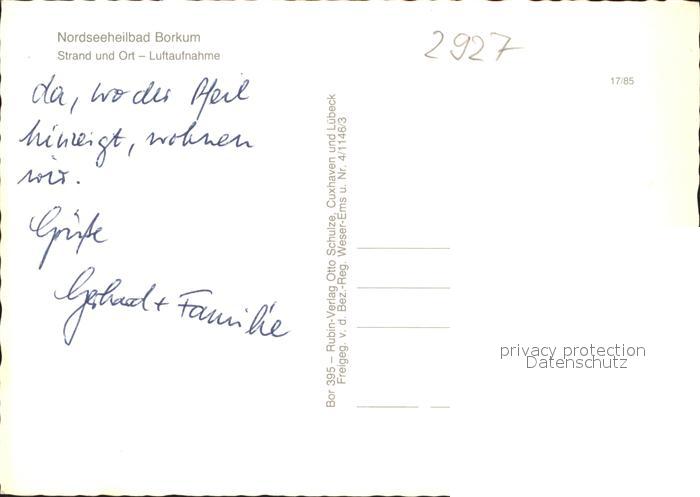 Nordseeheilbad Borkum
Strand und Ort – Luftaufnahme
2927
17/85
da, wo der Pfeil
hinzeigt, wohnen
wir.
Grüße
Gerhard + Familie
Bor 395 – Rubin-Verlag Otto Schulze, Cuxhaven und Lübeck
Freigeg. v. d. Bez.-Reg. Weser-Ems u. Nr. 4/1146/3
privacy protection
Datenschutz